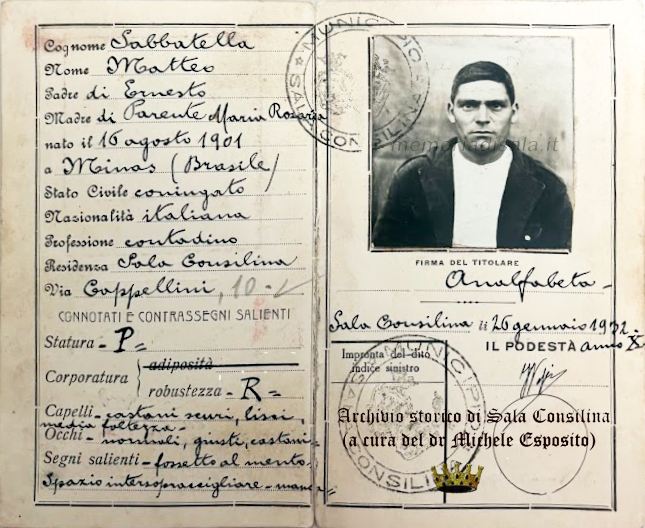 Cognome Sabbatella
Nome Matteo
Padre di Ernesto
Madre di Parente Maria Rosaria
nato il 16 agosto 1901
a Minas (Brasile)
Stato Civile coniugato
Nazionalità italiana
Professione contadino
Residenza Sala Consilina
Via Cappellini, 10
CONNOTATI E CONTRASSEGNI SALIENTI
Statura - P =
Corporatura adiposità
robustezza - R =
Capelli - castani scuri, lisci,
media foltezza -
Occhi - normali, giusti, castani =
Segni salienti - fossetto al mento.
Spazio intersopraccigliare - manca =
MUNICIPIO
SALA CONSILINA
memoriedisala.it
FIRMA DEL TITOLARE
Analfabeta -
Sala Consilina li 26 gennaio 1932 =
IL PODESTÀ anno X
Impronta del dito
indice sinistro
MUNICIPIO
CONSILINA
Archivio storico di Sala Consilina
(a cura del dr Michele Esposito)